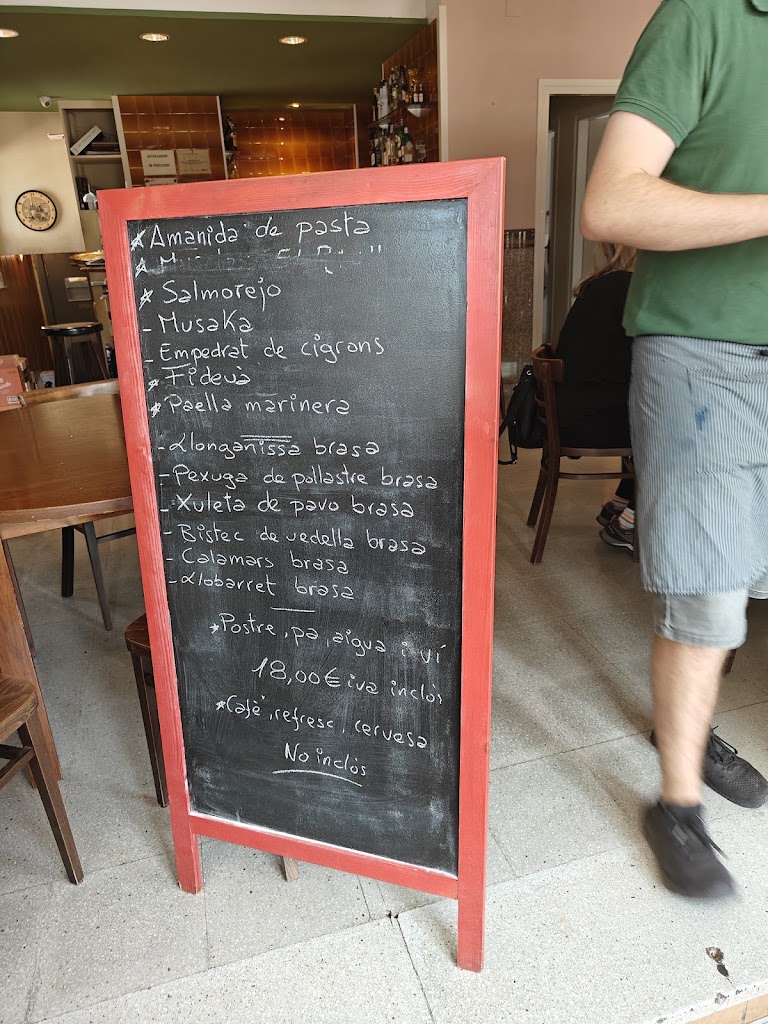 *Amanida de pasta
*
* Salmorejo
- Musaka
- Empedrat de cigrons
* Fideuà
* Paella marinera
- Llonganissa brasa
- Pexuga de pollastre brasa
- Xuleta de pavo brasa
- Bistec de vedella brasa
- Calamars brasa
- Llobarret brasa
*Postre, pa, aigua i ví
18,00€ iva inclos
*Cafè, refresc, cervesa
No inclòs